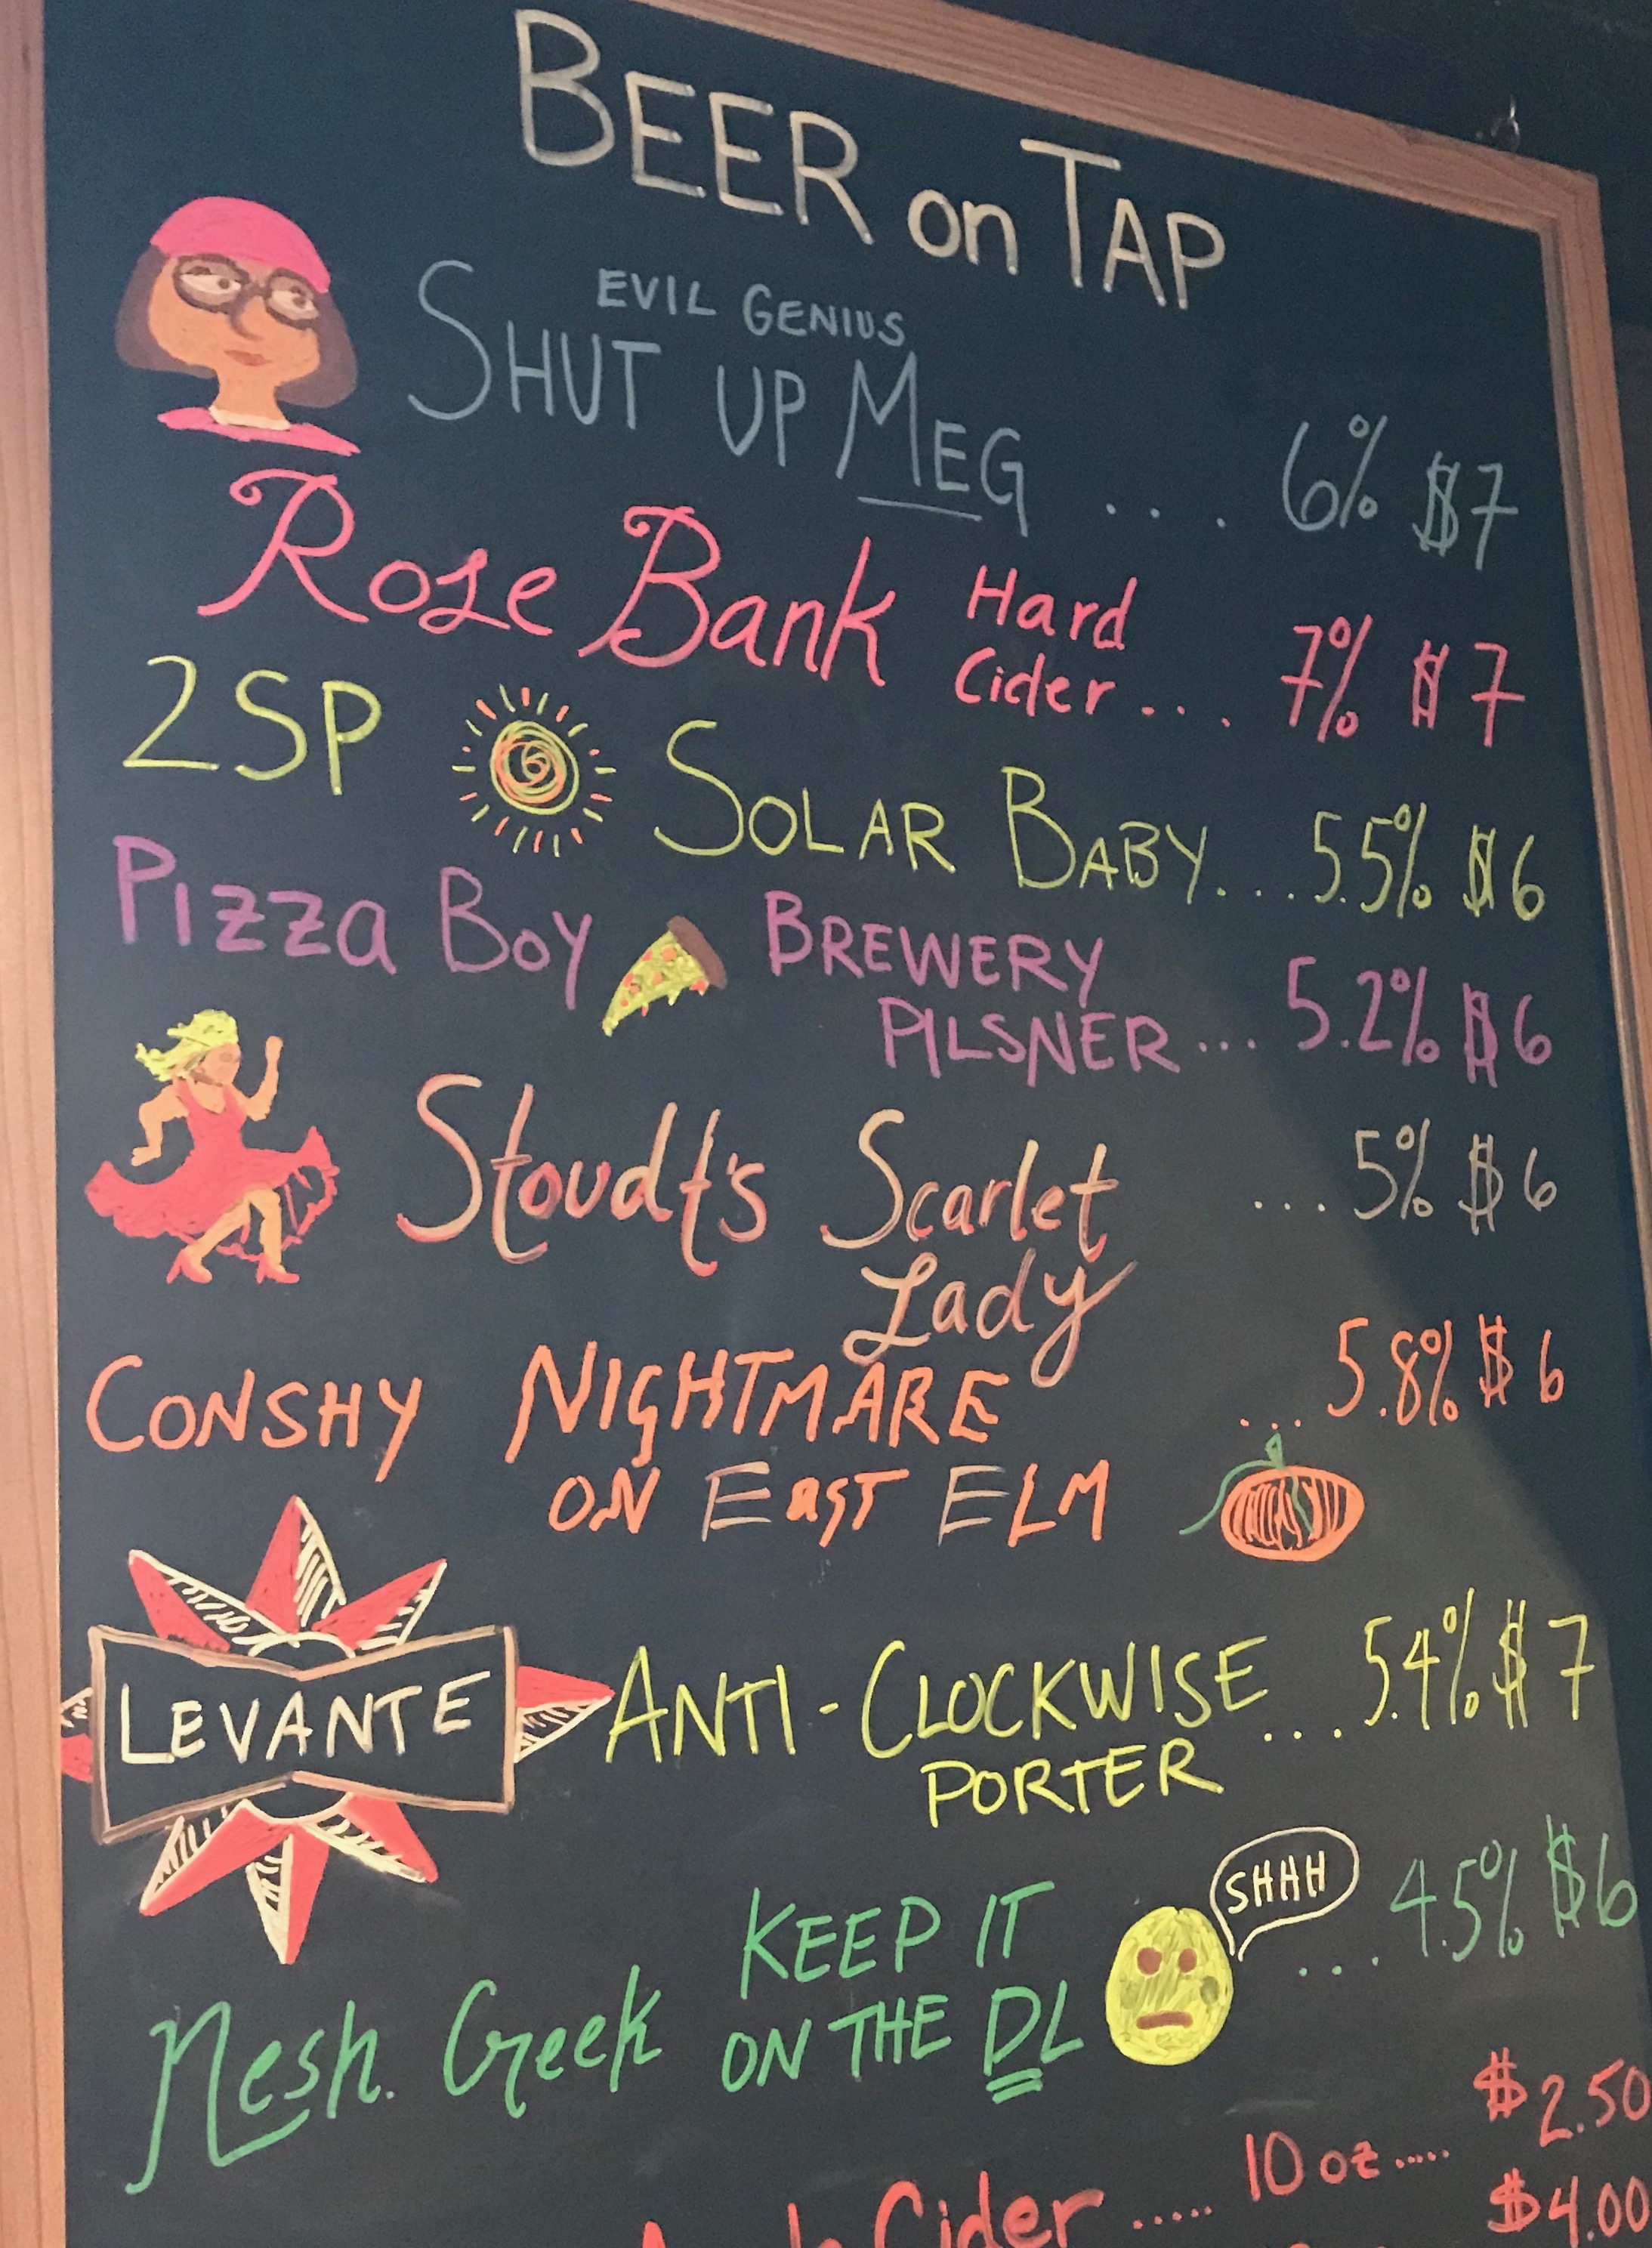 BEER on TAP
EVIL GENIUS
SHUT UP MEG ... 6% $7
Rose Bank Hard
Cider... 7% $7
2SP SOLAR BABY... 5.5% $6
PIZZA BOY BREWERY
PILSNER... 5.2% $6
Stoudt's Scarlet ... 5% $6
Lady
CONSHY NIGHTMARE ... 5.8% $6
ON EAST ELM
LEVANTE ANTI-CLOCKWISE ... 5.4% $7
PORTER
SHHH
KEEP IT .... 4.5% $6
Nesh. Creek ON THE DL
10 oz ..... $2.50
Cider .....
$4.00